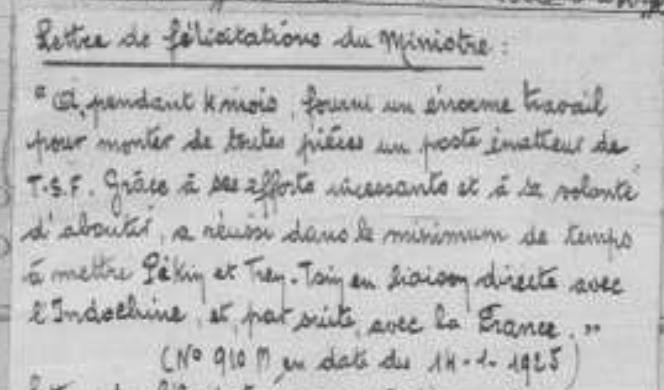 Lettre de félicitations du Ministre :
"A, pendant 4 mois, fourni un énorme travail
pour monter de toutes pièces un poste émetteur de
T.S.F. Grâce à ses efforts incessants et à sa volonté
d'aboutir, a réussi dans le minimum de temps
à mettre Pékin et Tien-Tsin en liaison directe avec
l'Indochine, et, par suite, avec la France."
(N° 910 M en date du 14-1-1925)